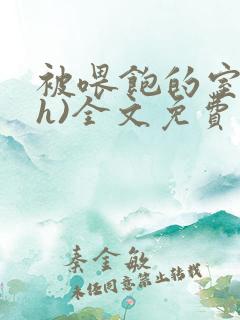 被喂飽的室
h)全文免費
秦金敏
未任同意禁止转载